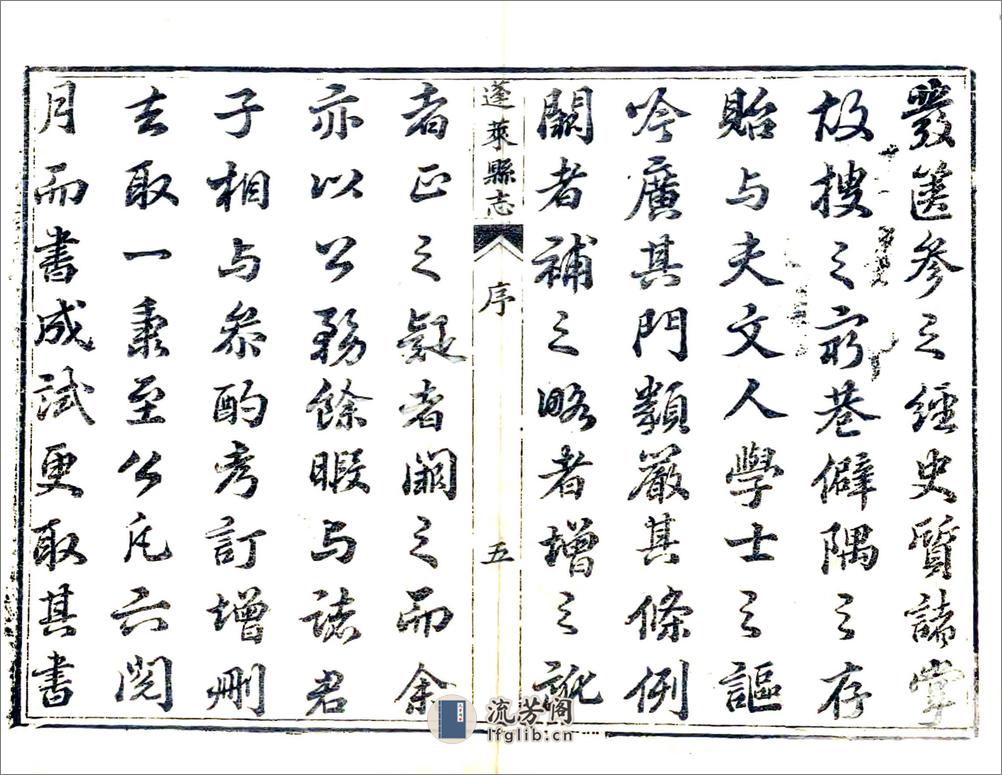 發篋參之經史質諸掌
故搜之窮巷僻隅之存
貽与夫文人學士之謳
吟廣其門類嚴其條例
闕者補之略者增之訛
蓬萊縣志
序
五
者正之疑者闕之而余
亦以公務餘暇与諸君
子相与參酌考訂增刪
去取一秉至公凡六閱
月而書成試更取其書
流芳阁
lfglib.cn